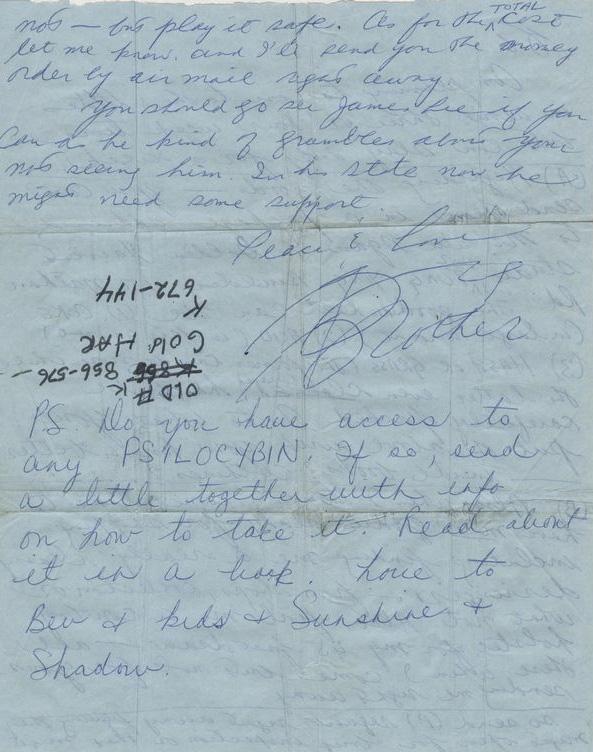 not — but play it safe. As for the TOTAL cost
let me know and I'll send you the money
order by air mail right away
You should go see James Lee if you
can as he kind of grumbles about your
not seeing him. In his state now he
might need some support
Peace & Love
Brother
OLD # K
K 856 856-576-
Gold HAR
K
672-144
PS. Do you have access to
any PSILOCYBIN. If so, send
a little together with info
on how to take it. Read about
it in a book. Love to
Bev & kids & Sunshine &
Shadow.